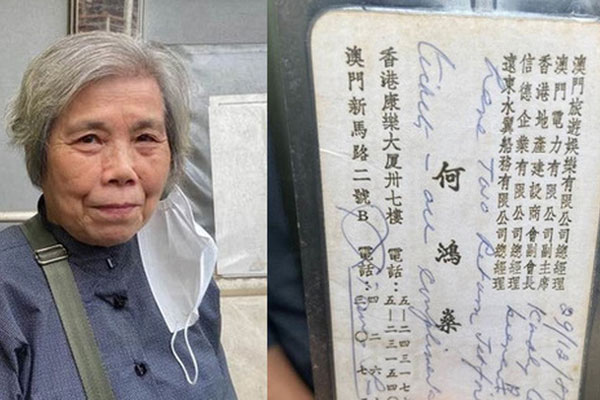 澳門旅遊娛樂有限公司總經理
澳門電力有限公司副主席
香港地產建設商會副會長
信德企業有限公司總經理
遠東水翼船務有限公司總經理
何鴻燊
香港康樂大厦卅七樓 電話:五—二四三一七
五—二三一五四
澳門新馬路二號B 電話:
Kindly
Two Return Jetfoil
tickets - our compliments